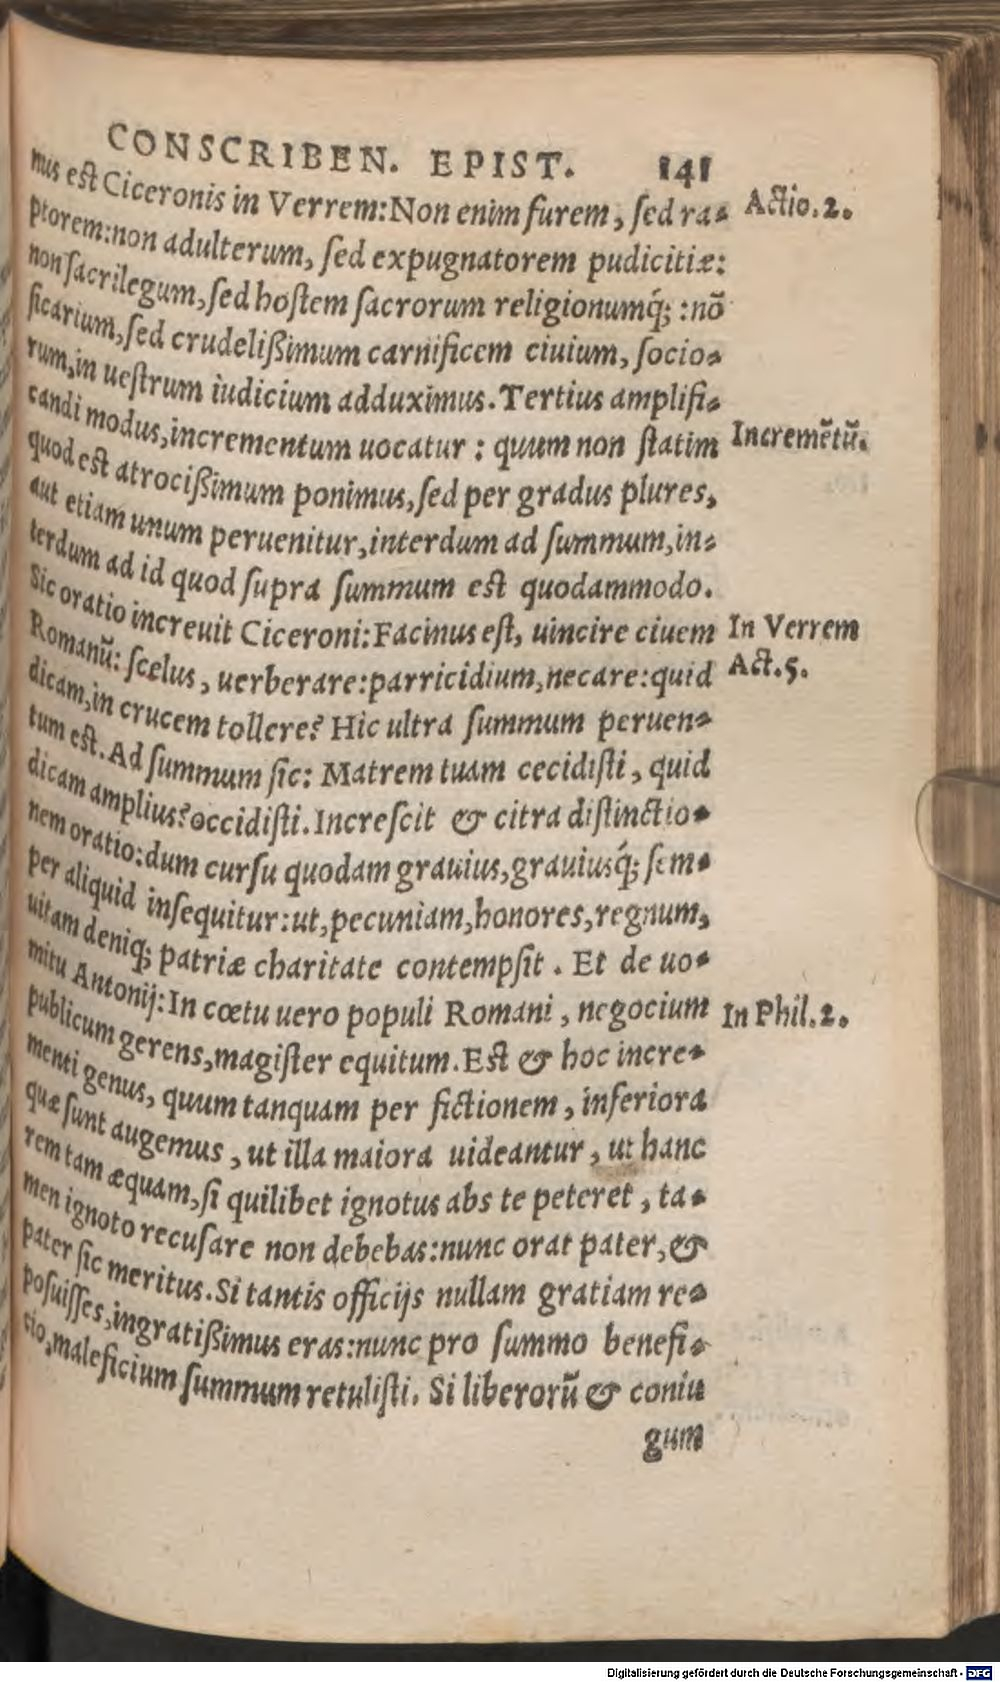 CONSCRIBEN. EPIST. 141
mus est Ciceronis in Verrem: Non enim furem, sed ra- Actio.2.
ptorem: non adulterum, sed expugnatorem pudicitiæ:
non sacrilegum, sed hostem sacrorum religionumq́;: nõ
sicarium, sed crudelißimum carnificem ciuium, socio-
rum, in uestrum iudicium adduximus. Tertius amplifi-
candi modus, incrementum uocatur: quum non statim Incremẽtũ.
quod est atrocißimum ponimus, sed per gradus plures,
aut etiam unum peruenitur, interdum ad summum, in-
terdum ad id quod supra summum est quodammodo.
Sic oratio increuit Ciceroni: Facinus est, uincire ciuem In Verrem
Romanũ: scelus, uerberare: parricidium, necare: quid Act.5.
dicam, in crucem tollere? Hic ultra summum peruen-
tum est. Ad summum sic: Matrem tuam cecidisti, quid
dicam amplius? occidisti. Increscit & citra distinctio-
nem oratio: dum cursu quodam grauius, grauiusq́; sem-
per aliquid insequitur: ut, pecuniam, honores, regnum,
uitam deniq; patriæ charitate contempsit. Et de uo-
mitu Antonij: In cœtu uero populi Romani, negocium In Phil.2.
publicum gerens, magister equitum. Est & hoc incre-
menti genus, quum tanquam per fictionem, inferiora
quæ sunt augemus, ut illa maiora uideantur, ut hanc
rem tam æquam, si quilibet ignotus abs te peteret, ta-
men ignoto recusare non debebas: nunc orat pater, &
pater sic meritus. Si tantis officijs nullam gratiam re-
posuisses, ingratißimus eras: nunc pro summo benefi-
cio, maleficium summum retulisti. Si liberorũ & coniu
gum
Digitalisierung gefördert durch die Deutsche Forschungsgemeinschaft - DFG